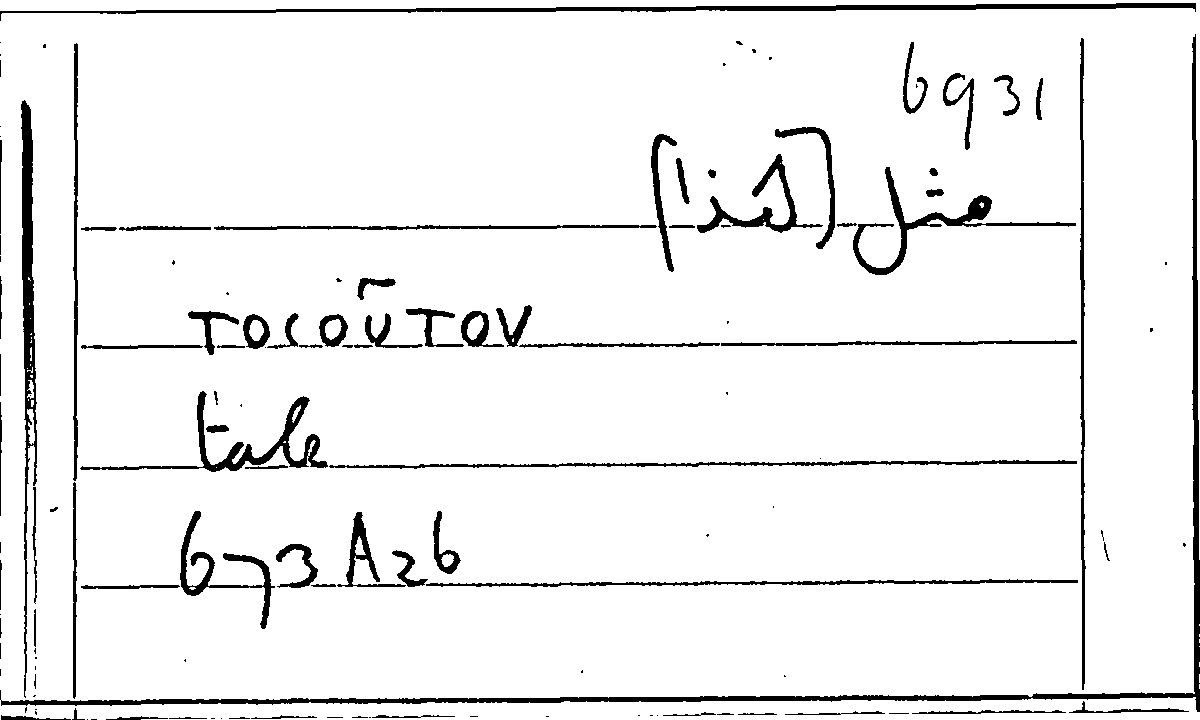 6931
مثل [هذا]
τοϲοῦτον
tale
673A26